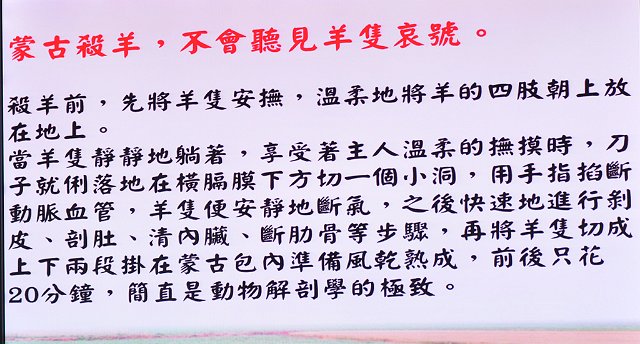 蒙古殺羊，不會聽見羊隻哀號。
殺羊前，先將羊隻安撫，溫柔地將羊的四肢朝上放
在地上。
當羊隻靜靜地躺著，享受著主人溫柔的撫摸時，刀
子就俐落地在橫膈膜下方切一個小洞，用手指掐斷
動脈血管，羊隻便安靜地斷氣，之後快速地進行剝
皮、剖肚、清內臟、斷肋骨等步驟，再將羊隻切成
上下兩段掛在蒙古包內準備風乾熟成，前後只花
20分鐘，簡直是動物解剖學的極致。